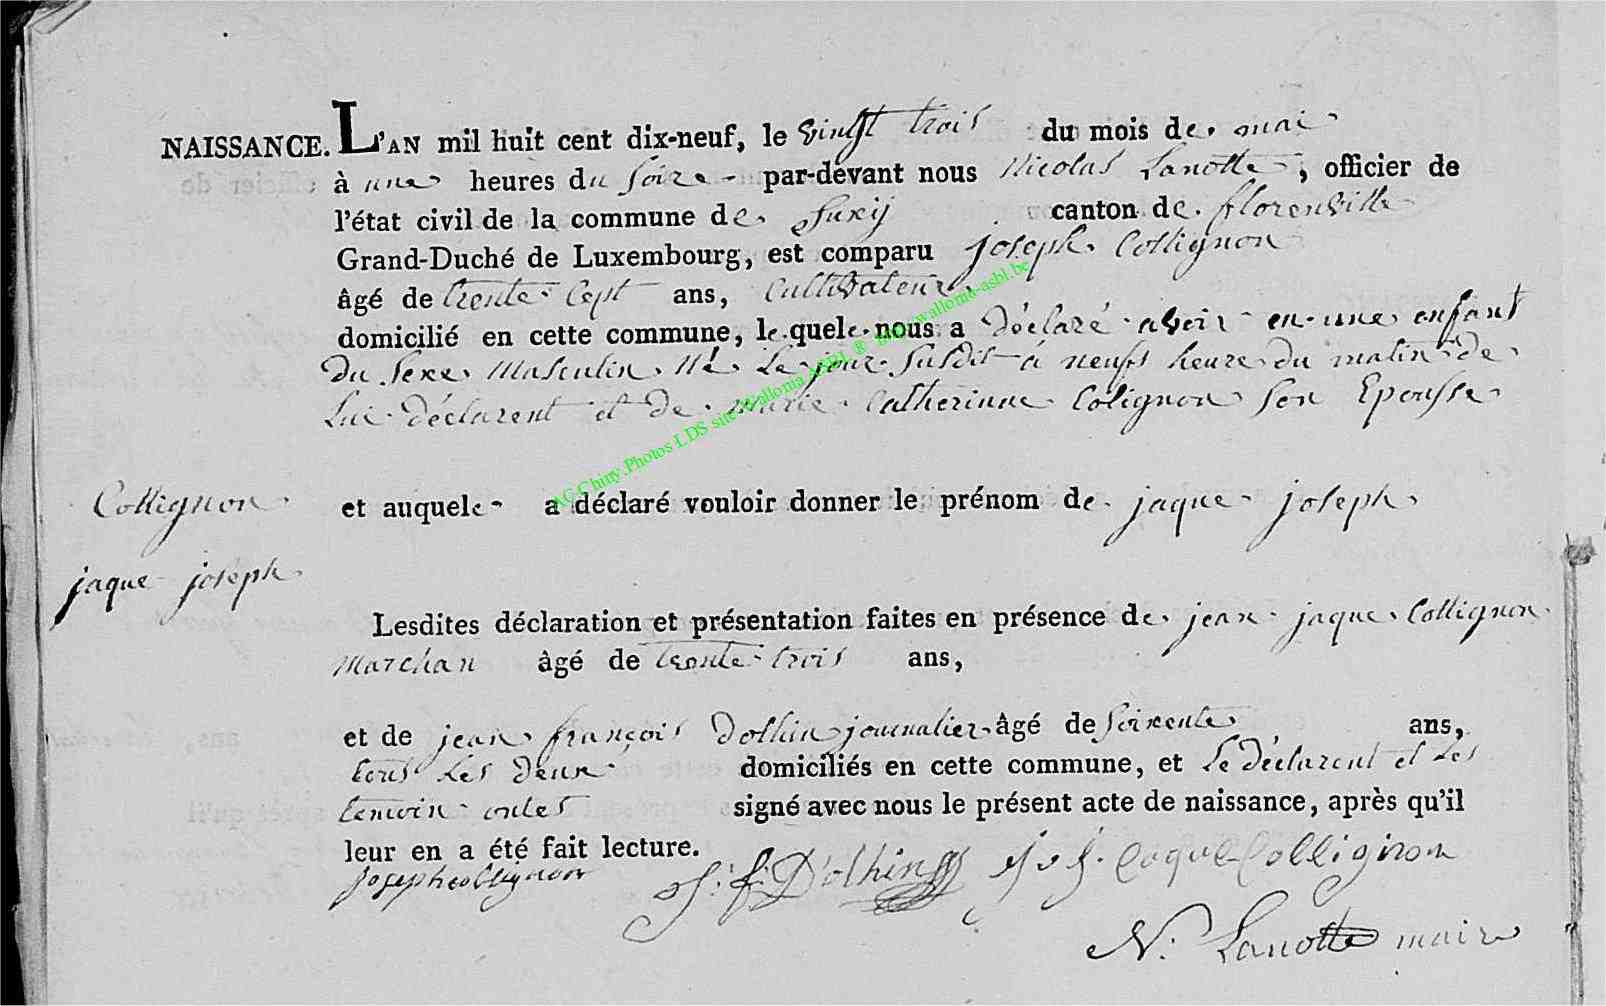 NAISSANCE. L'AN mil huit cent dix-neuf, le vingt trois du mois de mai
à une heures du soire par-devant nous Nicolas Lanotte, officier de
l'état civil de la commune de Suxij canton de florenville
Grand-Duché de Luxembourg, est comparu joseph Collignon
âgé de trente sept ans, Cultivateur
domicilié en cette commune, lequele nous a déclaré avoir en une enfant
du sexe masculin né le jour susdit à neufs heure du matin de
Lui déclarent et de marie Catherinne Colignon son Epousse
Collignon et auquele a déclaré vouloir donner le prénom de jaque joseph
jaque joseph
Lesdites déclaration et présentation faites en présence de jean jaque Collignon
marchan âgé de trente trois ans,
et de jean françois dolhin journalier âgé de soixente ans,
tous les deux domiciliés en cette commune, et le déclarent et les
temoin ontes signé avec nous le présent acte de naissance, après qu'il
leur en a été fait lecture.
joseph collignon J: f: D'olhin Collignon
N: Lanotte maire
AC Chiny Photos LDS site Wallonia ASBL ® http:wallonia-asbl.be